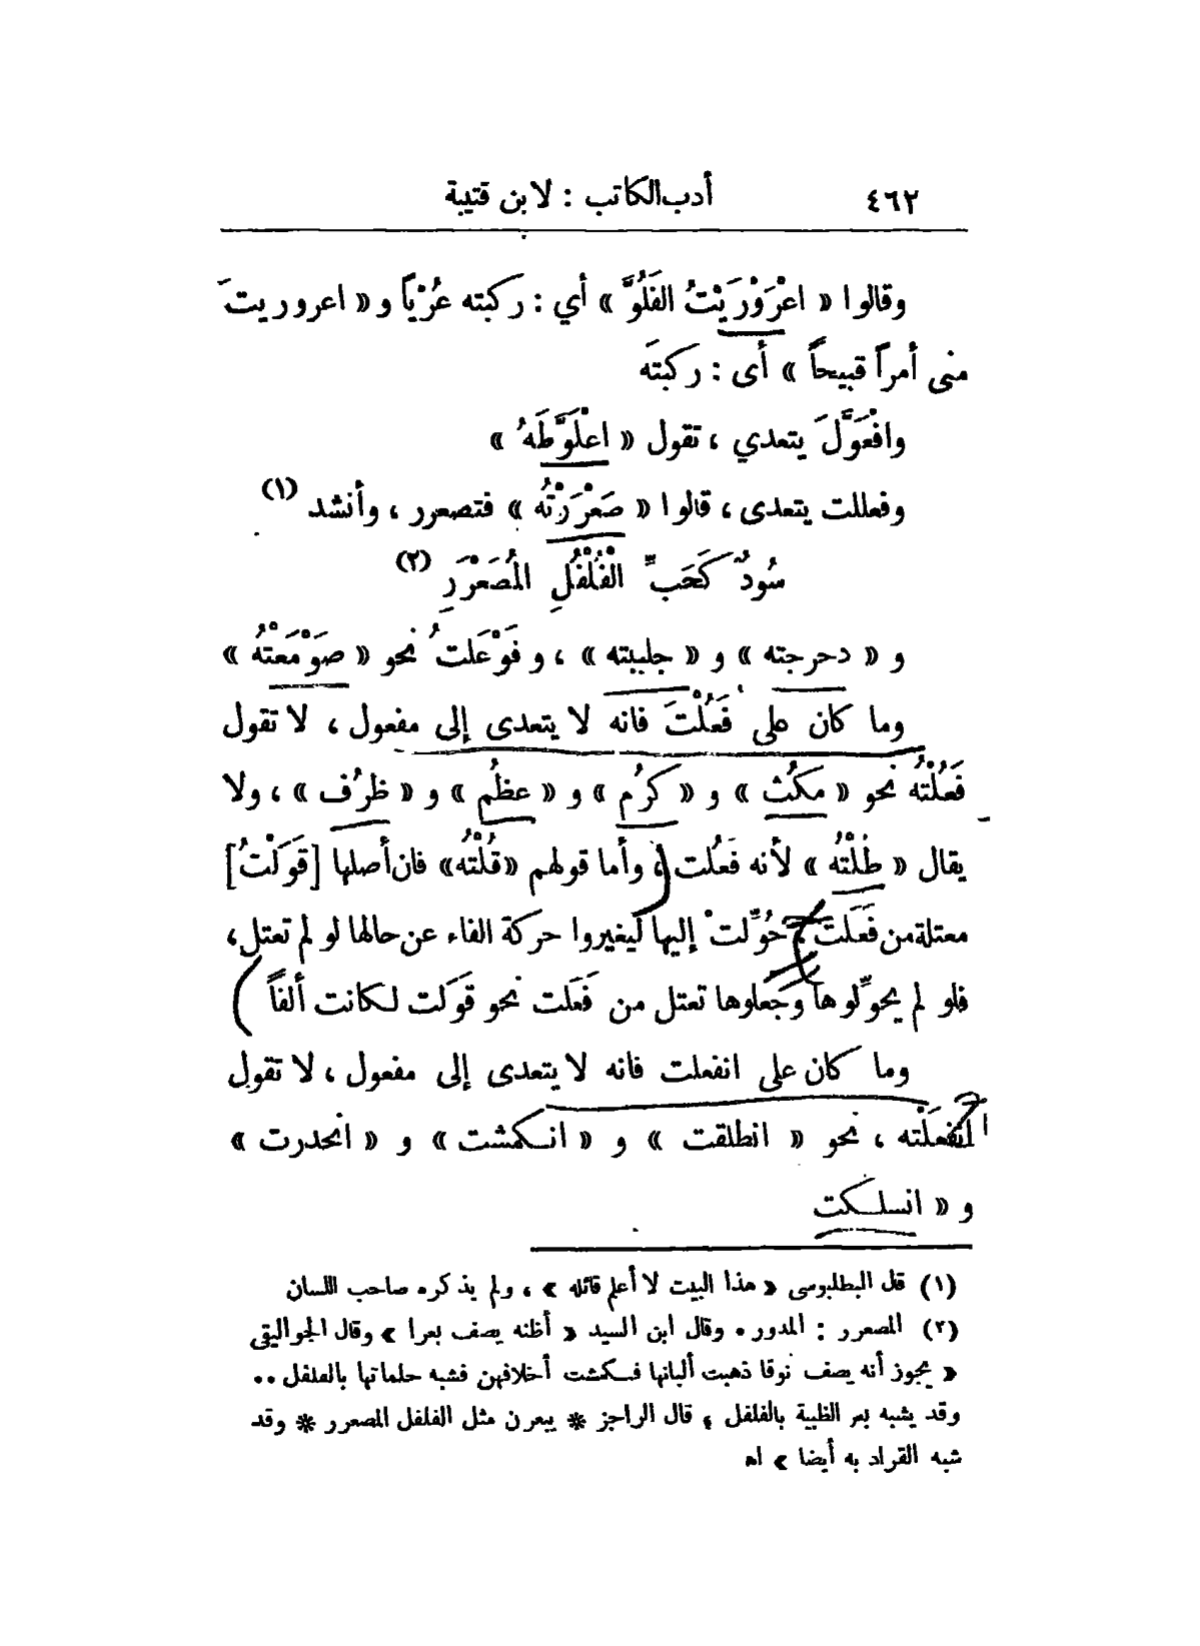 ٤٦٢ أدب الكاتب : لابن قتيبة
وقالوا « اعْرَوْرَيْتُ الفَلُوَّ » أي : ركبته عُرْياً و « اعروريتَ
منى أمراً قبيحاً » أى : ركبتَه
وافْعَوَّلَ يتعدي ، تقول « اعْلَوَّطَهُ »
وفعللت يتعدى ، قالوا « صَعْرَرْتُه » فتصعرر ، وأنشد (١)
سُودٌ كَحَبِّ الْفُلْفُلِ المُصَعْرَرِ (٢)
و « دحرجته » و « جلببته » ، و فَوْعَلتُ نحو « صَوْمَعْتُهُ »
وما كان على فَعُلْتَ فانه لا يتعدى إلى مفعول ، لا تقول
فَعُلْتُه نحو « مكُث » و « كرُم » و « عظُم » و « ظرُف » ، ولا
يقال « طُلْتُه » لأنه فَعُلت ، وأما قولهم «قُلْتُه» فان أصلها [قَوَلْتُ]
معتلة من فَعَلَت ، حُوِّلتْ إليها ليغيروا حركة الفاء عن حالها لو لم تعتل ،
فلو لم يحوِّلوها وجعلوها تعتل من فَعَلت نحو قَوَلت لكانت ألفاً
وما كان على انفعلت فانه لا يتعدى إلى مفعول ، لا تقول
انفعَلْته ، نحو « انطلقت » و « انكمشت » و « انحدرت »
و « انسلكت
(١) قل البطلبوسى « هذا البيت لا أعلم قائله » ، ولم يذكره صاحب اللسان
(٢) المصعرر : المدور . وقال ابن السيد « أظنه يصف بعرا » وقال الجواليقي
« يجوز أنه يصف نوقا ذهبت ألبانها فكمشت أخلافهن فشبه حلماتها بالفلفل ..
وقد يشبه بعر الظبية بالفلفل ، قال الراجز * يبعرن مثل الفلفل المصعرر * وقد
شبه القراد به أيضا » اه